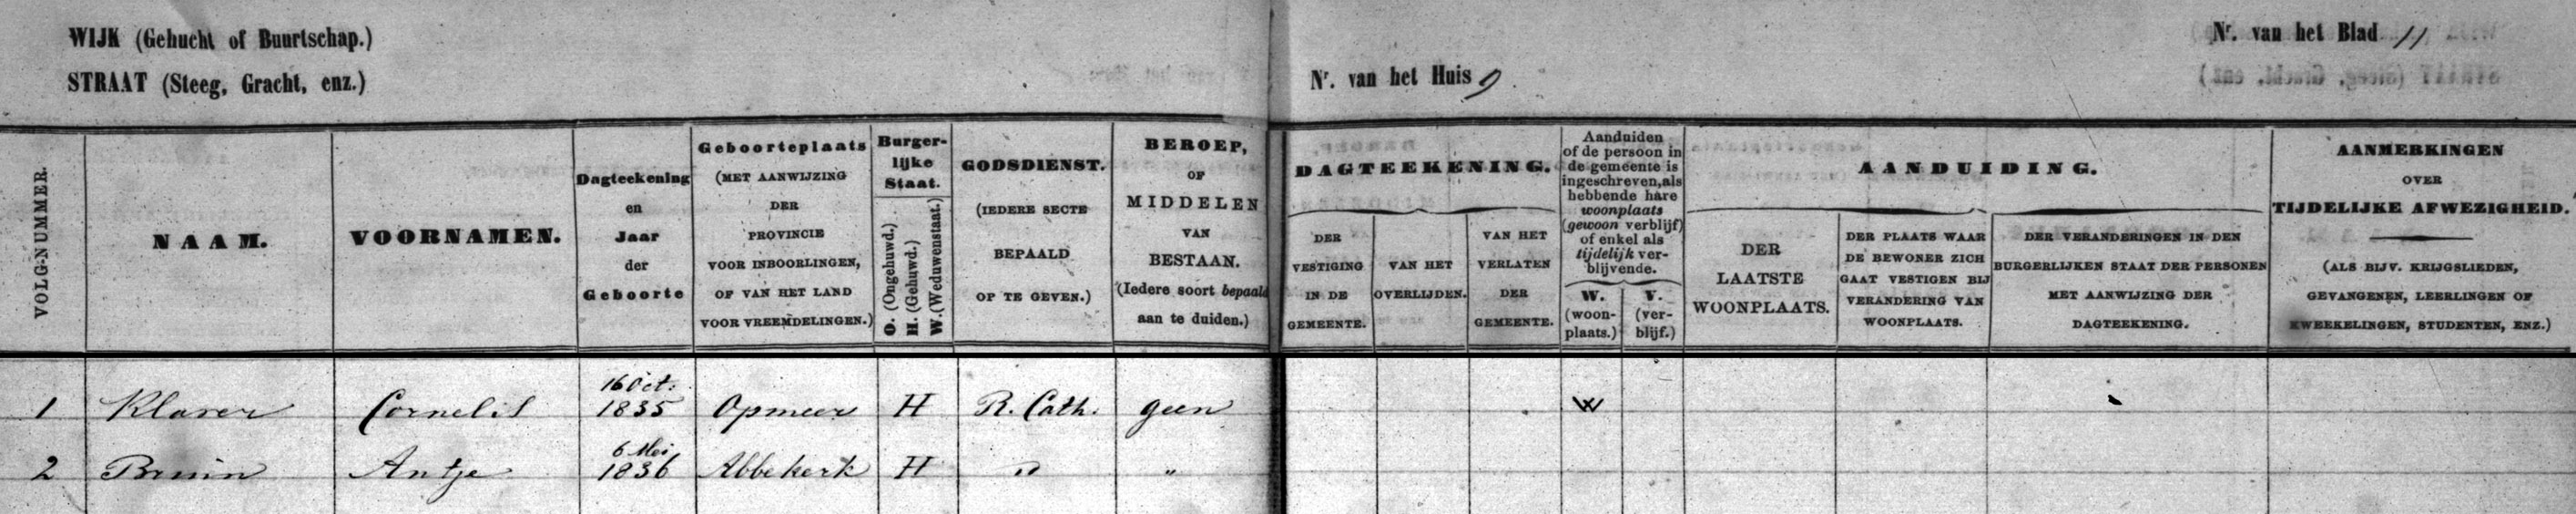 WIJK (Gehucht of Buurtschap.)
STRAAT (Steeg, Gracht, enz.)
Nr. van het Huis 9
Nr. van het Blad 11
VOLG-NUMMER.
NAAM.
VOORNAMEN.
Dagteekening
en
Jaar
der
Geboorte
Geboorteplaats
(MET AANWIJZING
DER
PROVINCIE
VOOR INBOORLINGEN,
OF VAN HET LAND
VOOR VREEMDELINGEN.)
Burger-
lijke
Staat.
O. (Ongehuwd.)
H. (Gehuwd.)
W. (Weduwenstaat.)
GODSDIENST.
(IEDERE SECTE
BEPAALD
OP TE GEVEN.)
BEROEP,
OF
MIDDELEN
VAN
BESTAAN.
(Iedere soort bepaald
aan te duiden.)
DAGTEEKENING.
DER
VESTIGING
IN DE
GEMEENTE.
VAN HET
OVERLIJDEN.
VAN HET
VERLATEN
DER
GEMEENTE.
Aanduiden
of de persoon in
de gemeente is
ingeschreven, als
hebbende hare
woonplaats
(gewoon verblijf)
of enkel als
tijdelijk ver-
blijvende.
W.
(woon-
plaats.)
V.
(ver-
blijf.)
AANDUIDING.
DER
LAATSTE
WOONPLAATS.
DER PLAATS WAAR
DE BEWONER ZICH
GAAT VESTIGEN BIJ
VERANDERING VAN
WOONPLAATS.
DER VERANDERINGEN IN DEN
BURGERLIJKEN STAAT DER PERSONEN
MET AANWIJZING DER
DAGTEEKENING.
AANMERKINGEN
OVER
TIJDELIJKE AFWEZIGHEID.
(ALS BIJV. KRIJGSLIEDEN,
GEVANGENEN, LEERLINGEN OF
KWEEKELINGEN, STUDENTEN, ENZ.)
1 Klaver Cornelis 16 Oct. 1835 Opmeer H R. Cath. geen W
2 Bruin Antje 6 Mei 1836 Abbekerk H " "